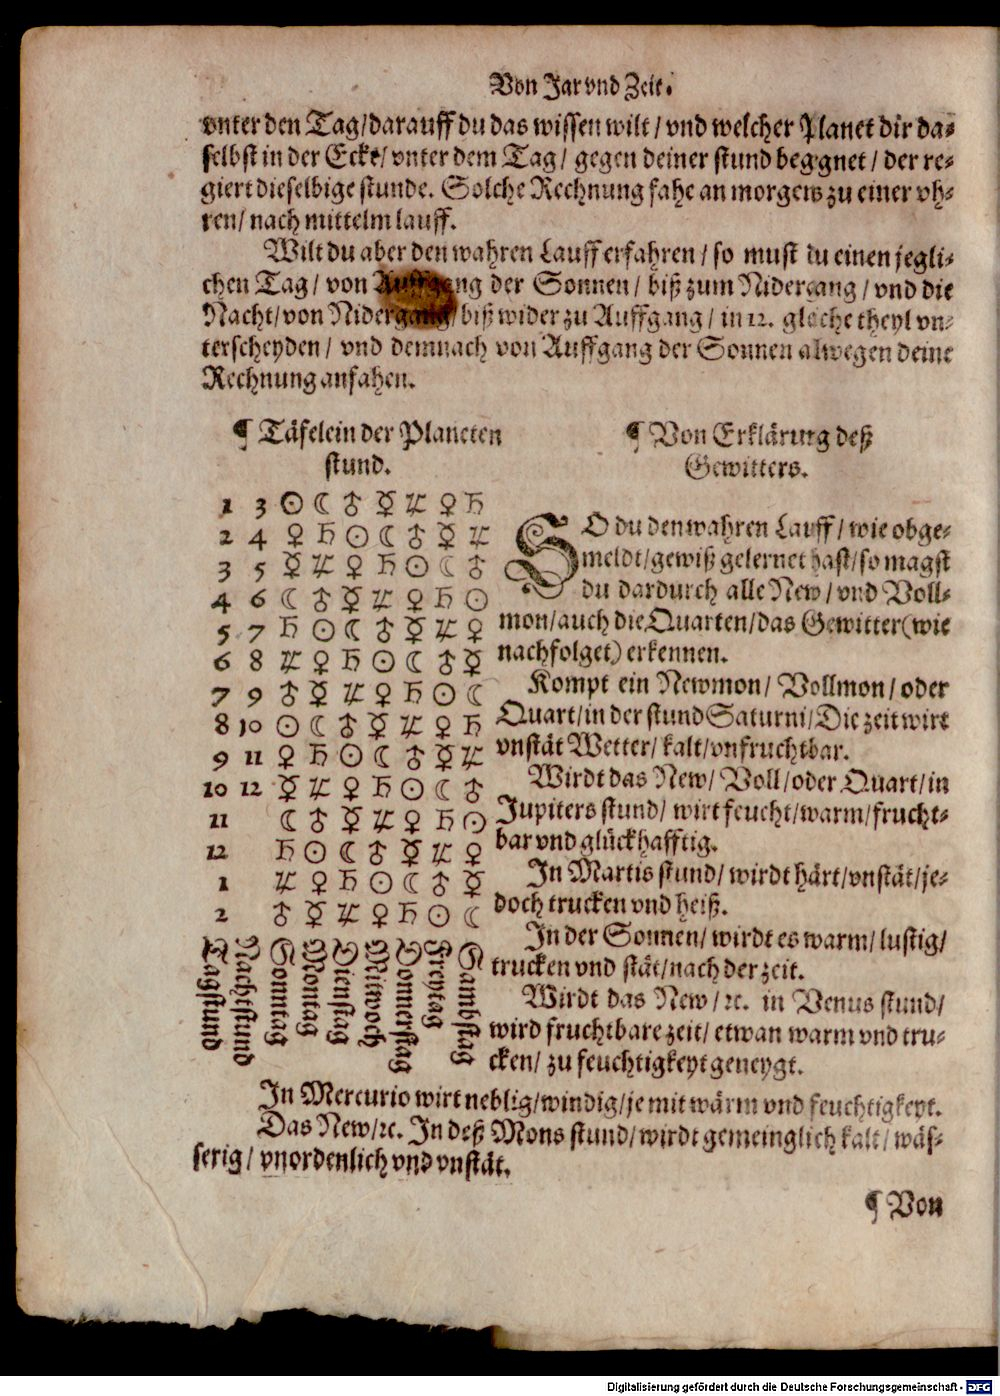 Von Jar vnd Zeit.
vnter den Tag/darauff du das wissen wilt/ vnd welcher Planet dir da-
selbst in der Eckt/ vnter dem Tag/ gegen deiner stund begegnet/ der re-
giert dieselbige stunde. Solche Rechnung fahe an morgens zu einer vh-
ren/ nach mittelm lauff.
Wilt du aber den wahren Lauff erfahren/ so must du einen jegli-
chen Tag/ von Auffgang der Sonnen/ biß zum Nidergang/ vnd die
Nacht/ von Nidergang/ biß wider zu Auffgang/ in 12. gleiche theyl vn-
terscheyden/ vnd demnach von Auffgang der Sonnen alwegen deine
Rechnung anfahen.
¶ Täfelein der Planeten
stund.
1 3 ☉ ☾ ♂ ☿ ♃ ♀ ♄
2 4 ♀ ♄ ☉ ☾ ♂ ☿ ♃
3 5 ☿ ♃ ♀ ♄ ☉ ☾ ♂
4 6 ☾ ♂ ☿ ♃ ♀ ♄ ☉
5 7 ♄ ☉ ☾ ♂ ☿ ♃ ♀
6 8 ♃ ♀ ♄ ☉ ☾ ♂ ☿
7 9 ♂ ☿ ♃ ♀ ♄ ☉ ☾
8 10 ☉ ☾ ♂ ☿ ♃ ♀ ♄
9 11 ♀ ♄ ☉ ☾ ♂ ☿ ♃
10 12 ☿ ♃ ♀ ♄ ☉ ☾ ♂
11 ☾ ♂ ☿ ♃ ♀ ♄ ☉
12 ♄ ☉ ☾ ♂ ☿ ♃ ♀
1 ♃ ♀ ♄ ☉ ☾ ♂ ☿
2 ♂ ☿ ♃ ♀ ♄ ☉ ☾
Tagstund
Nachtstund
Sonntag
Montag
Dienstag
Mitwoch
Donnerstag
Freytag
Sambstag
¶ Von Erklärung deß
Gewitters.
SO du den wahren Lauff/ wie obge-
meldt/gewiß gelernet hast/so magst
du dardurch alle New/ vnd Voll-
mon/auch die Quarten/das Gewitter(wie
nachfolget) erkennen.
Kompt ein Newmon/ Vollmon/ oder
Quart/in der stund Saturni/Die zeit wirt
vnstät Wetter/ kalt/vnfruchtbar.
Wirdt das New/ Voll/oder Quart/in
Jupiters stund/ wirt feucht/warm/frucht-
bar vnd glückhafftig.
In Martis stund/ wirdt härt/vnstät/je-
doch trucken vnd heiß.
In der Sonnen/ wirdt es warm/ lustig/
trucken vnd stät/nach der zeit.
Wirdt das New/ꝛc. in Venus stund/
wird fruchtbare zeit/ etwan warm vnd tru-
cken/ zu feuchtigkeyt geneygt.
In Mercurio wirt neblig/windig/je mit wärm vnd feuchtigkeyt.
Das New/ꝛc. In deß Mons stund/wirdt gemeinglich kalt/ wäs-
serig/ vnordenlich vnd vnstät.
¶ Von
Digitalisierung gefördert durch die Deutsche Forschungsgemeinschaft - DFG